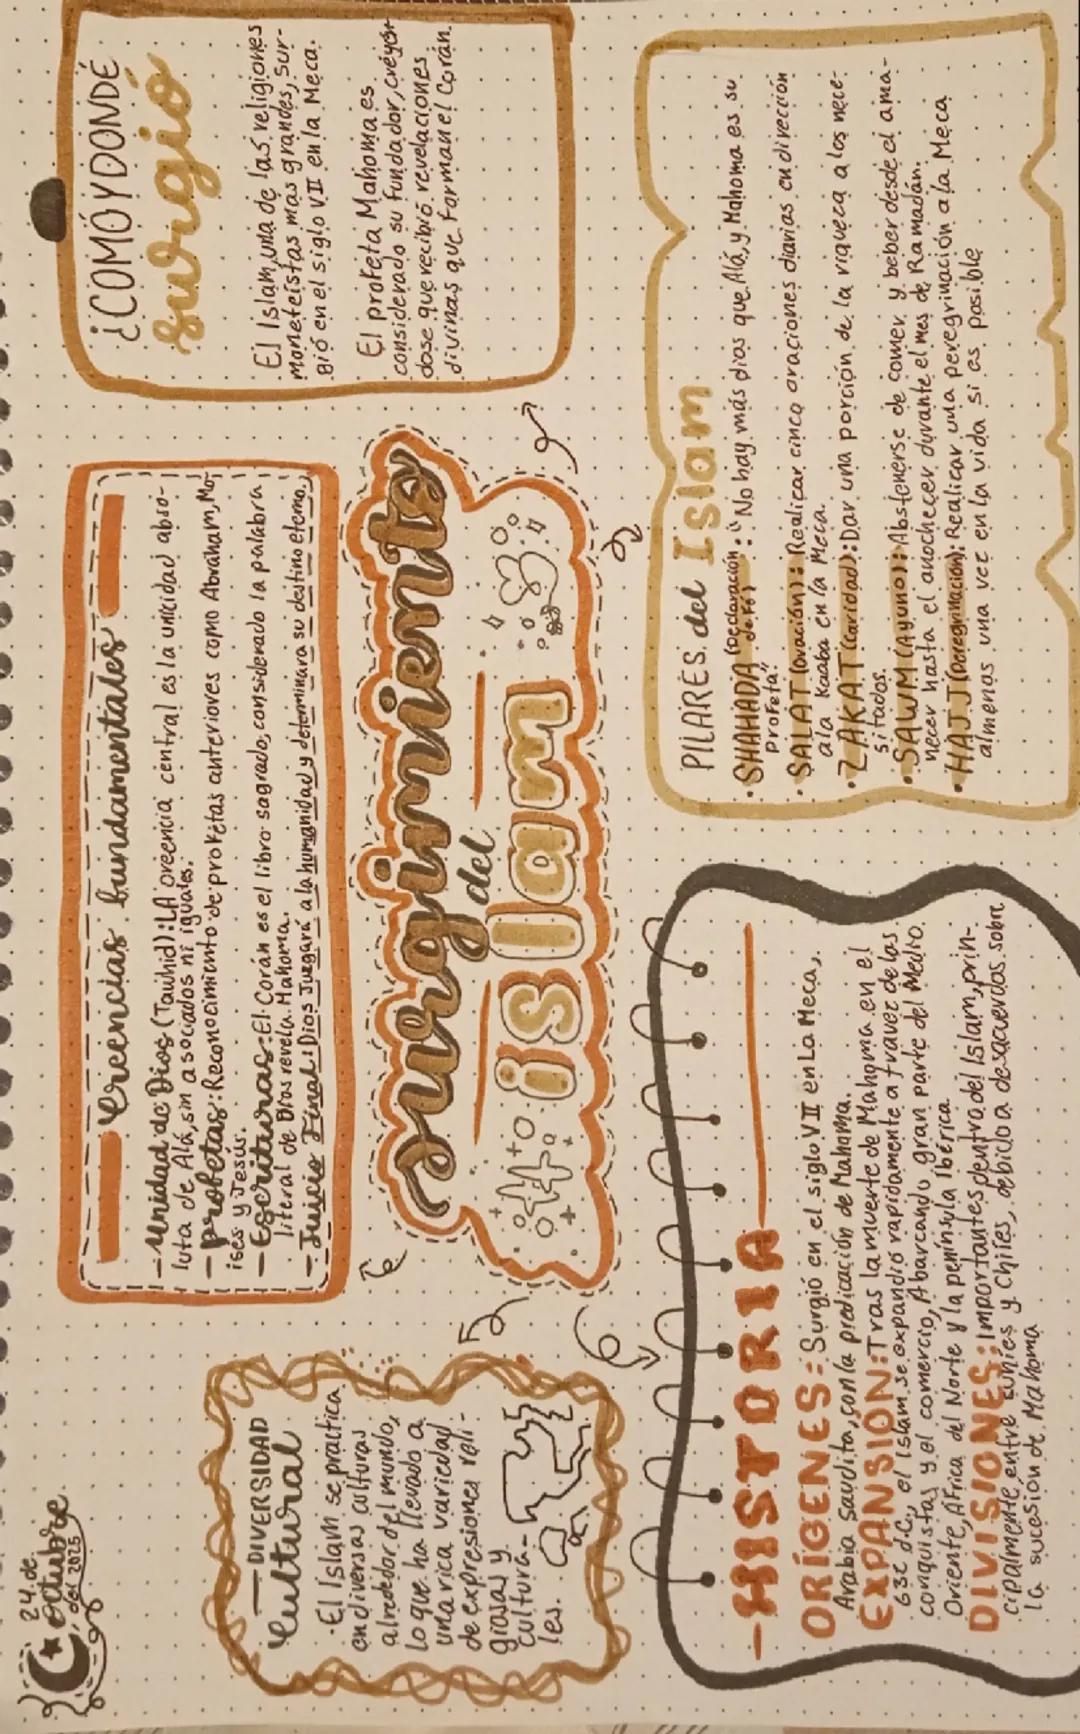 24. de
octubre
del 2025
creencias fundamentales
—Unidad de Dios (Tawhid): LA creencia central es la unicidad abso-
luta de Alá, sin asociados ni iguales.
—profetas: Reconocimiento de profetas anteriores como Abraham, Mo-
ises y Jesús.
—Escrituras—El Corán es el libro sagrado, considerado la palabra
literal de Dios revela. Mahoma.
—Juicio Final: Dios Juzgará a la humanidad y determinara su destino eterno.
¿COMÓ Y DONDÉ
surgió
El Islam, una de las religiones
moneteístas mas grandes, sur-
gió en el siglo VII en la Meca.
El profeta Mahoma es
considerado su fundador, creyén
dose que recibió revelaciones
divinas que forman el Corán.
—DIVERSIDAD
cultural
·El Islam se práctica
en diversas culturas
alrededor del mundo,
lo que ha llevado a
una rica variedad
de expresiones reli-
giosas y
cultura-
les.
surgimiento
del
islam
—HISTORIA—
ORÍGENES: Surgió en el siglo VII en La Meca,
Arabia Saudita, con la predicación de Mahoma.
EXPANSIÓN: Tras la muerte de Mahoma en el
632 d.C., el Islam se expandió rapidamente a travez de las
conquistas y el comercio, Abarcando gran parte del Medio
Oriente, África del Norte y la península Ibérica
DIVISIONES: Importantes dentro del Islam, prin-
cipalmente entre suníes y Chiíes, debido a desacuerdos sobre
la sucesion de Mahoma
PILARES del Islam
·SHAHADA (Declaración de Fé): "No hay más dios que Alá, y Mahoma es su
profeta"
·SALAT (oración): Realizar cinco oraciones diarias en dirección
a la Kaaba en la Meca.
·ZAKAT (Caridad): Dar una porción de la riqueza a los nece-
sitados.
·SAWM (Ayuno): Abstenerse de comer y beber desde el ama-
necer hasta el anochecer durante el mes de Ramadán.
·HAJJ (Peregrinación): Realizar una peregrinación a la Meca
almenos una vez en la vida si es posible